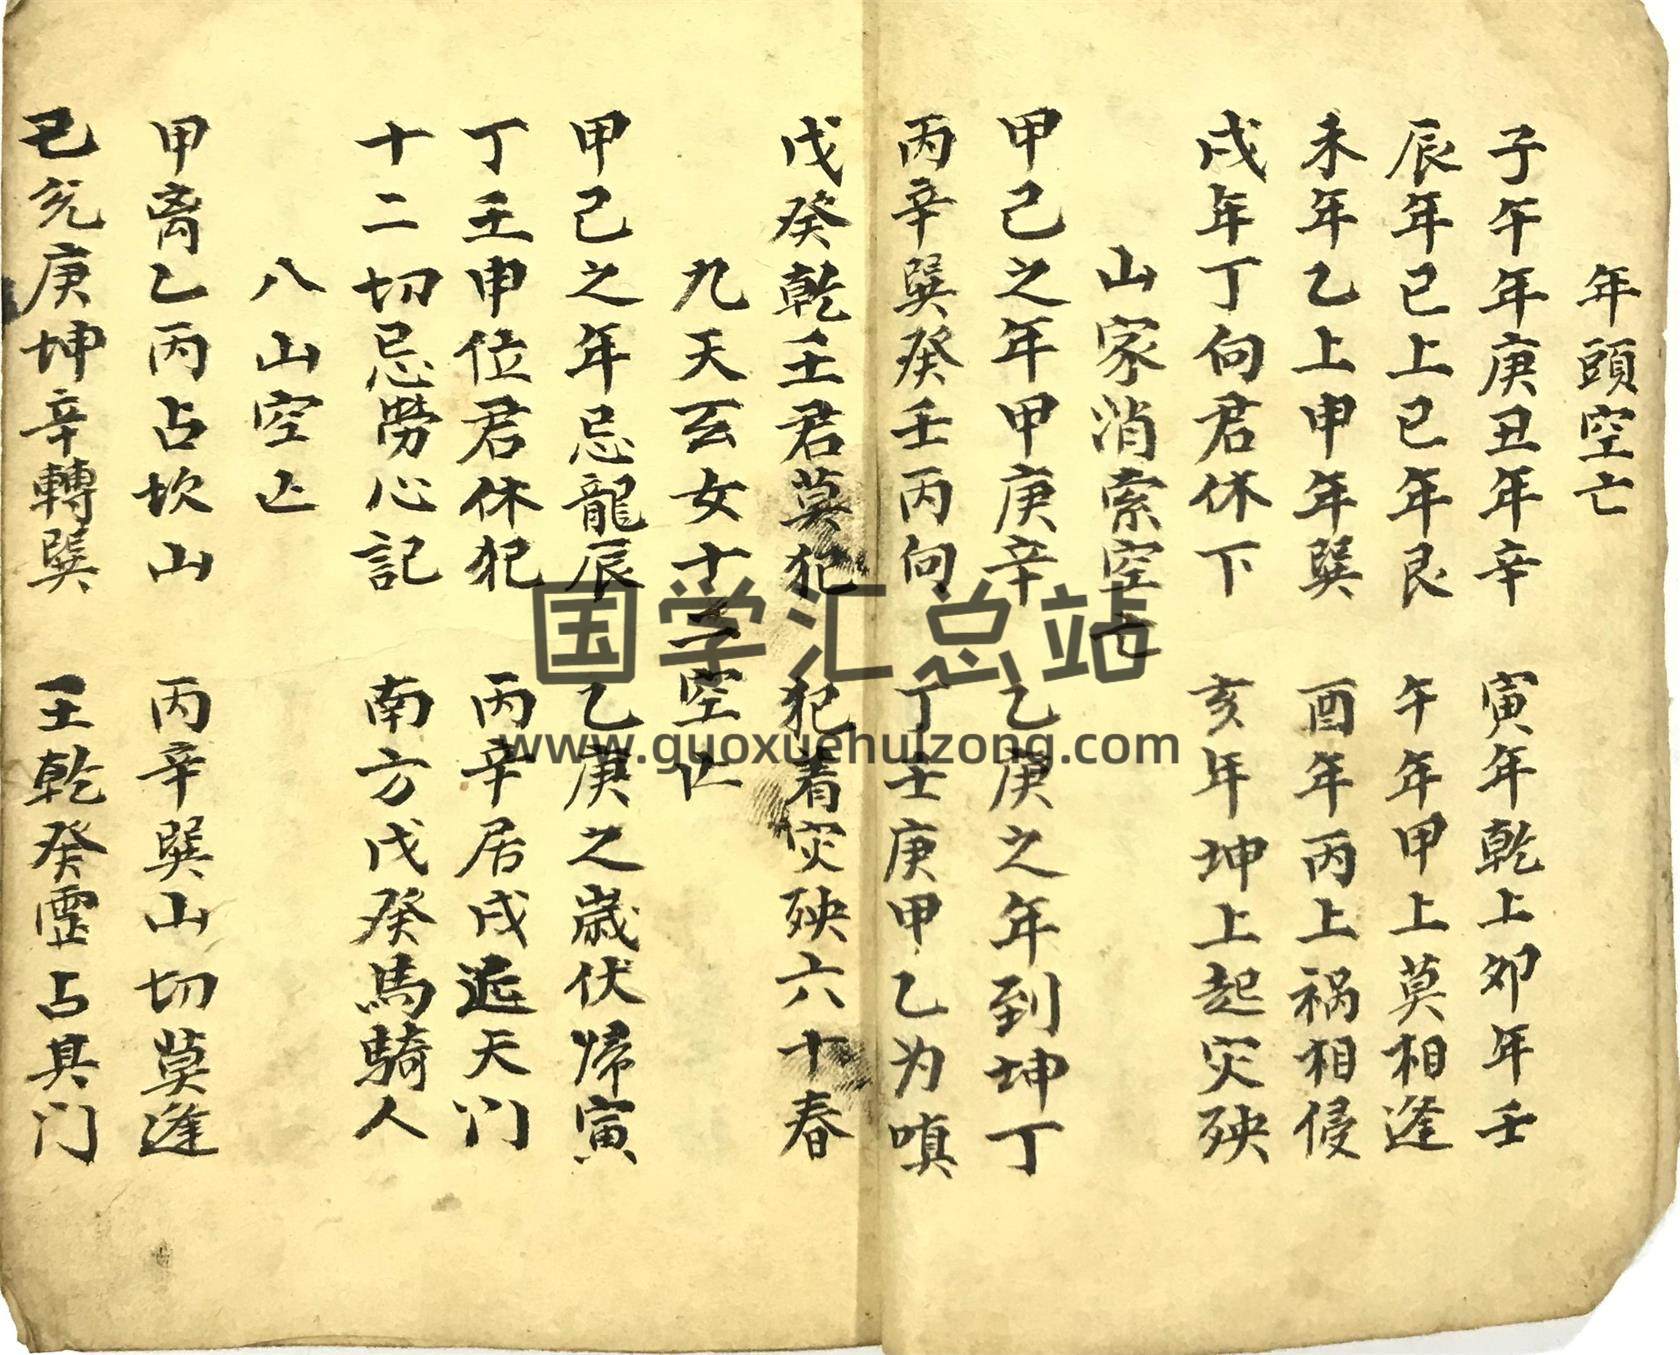 年頭空亡
子午年庚丑年辛 寅年乾上卯年壬
辰年巳上巳年艮 午年甲上莫相逢
未年乙上申年巽 酉年丙上祸相侵
戌年丁向君休下 亥年坤上起灾殃
山家消索空亡
甲己之年甲庚辛 乙庚之年到坤丁
丙辛巽癸壬丙向 丁壬庚甲乙为嗔
戊癸乾壬君莫犯 犯着灾殃六十春
九天玄女十二空亡
甲己之年忌龍辰 乙庚之歲伏帰寅
丁壬申位君休犯 丙辛居戌退天门
十二切忌勞心記 南方戊癸馬騎人
八山空亡
甲离乙丙占坎山 丙辛巽山切莫逢
己兑庚坤辛轉巽 王乾癸霊占具门
国学汇总站
www.guoxuehuizong.com